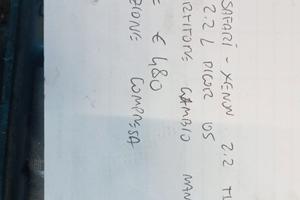 SAFARI - XENON 2.2 T
2.2 L DICOR DS
RTITORE CAMBIO MAN
= € 480
ZIONE COMPRESA